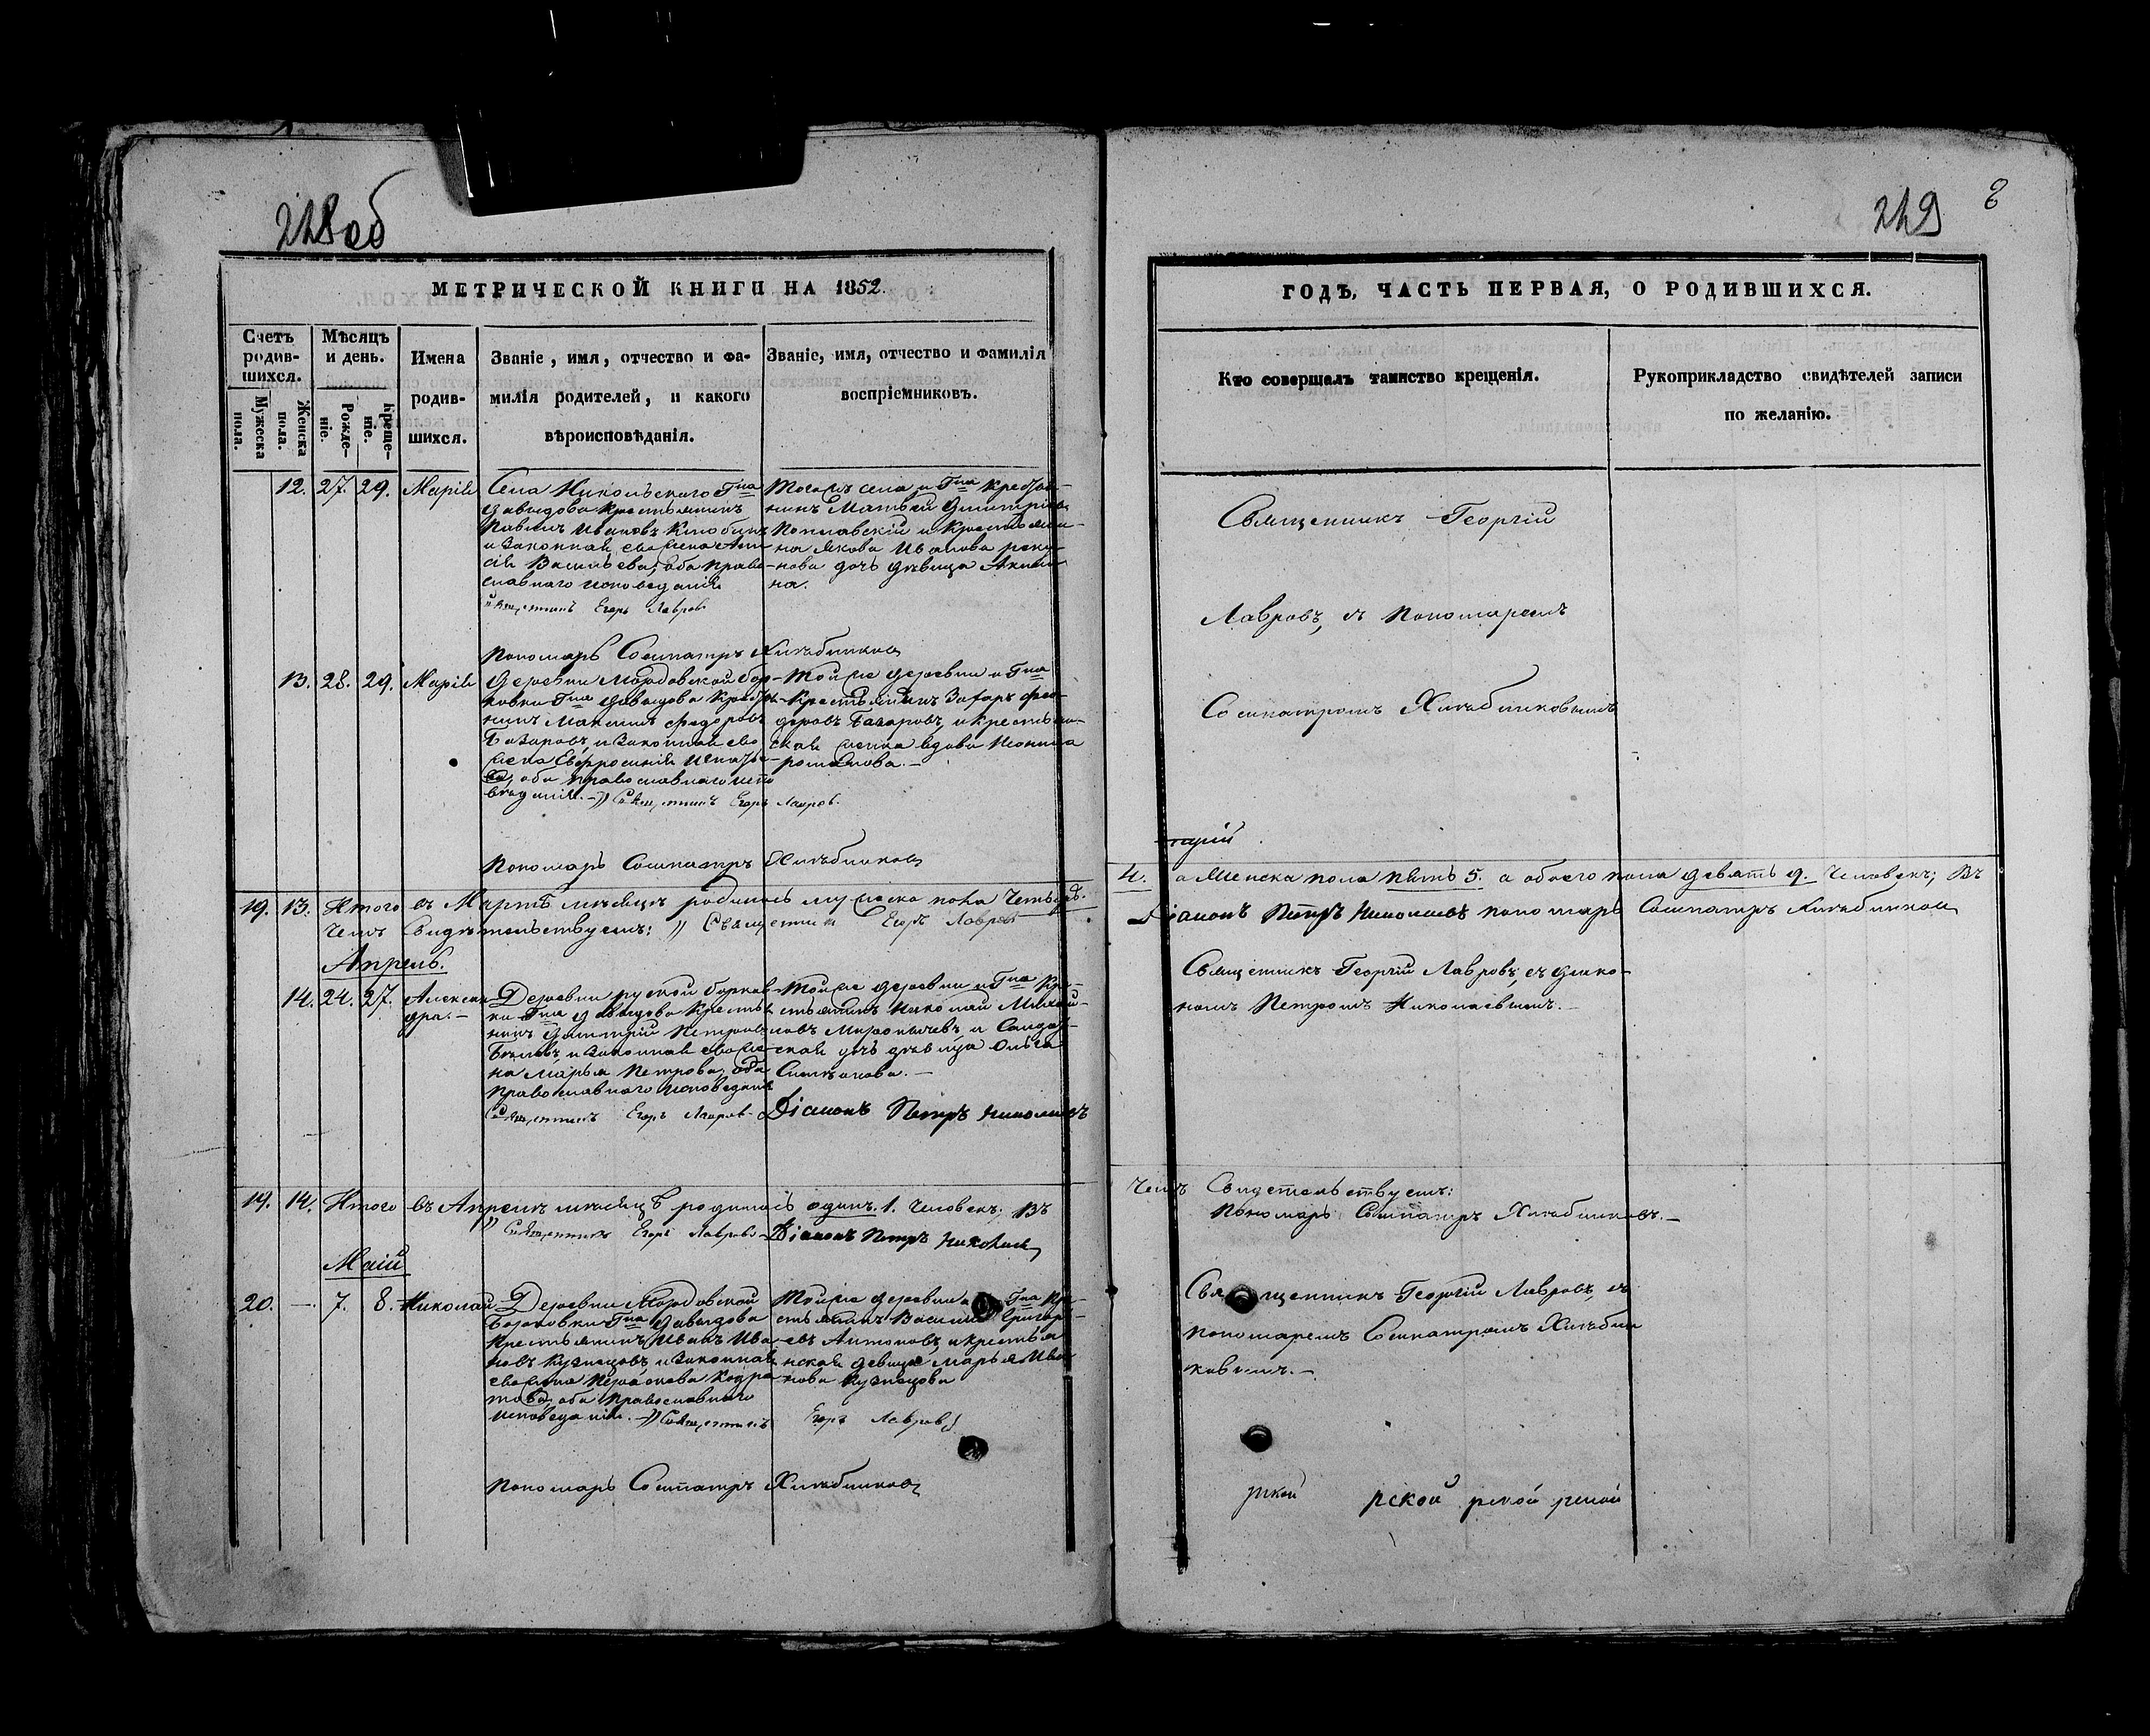 228 об
МЕТРИЧЕСКОЙ КНИГИ НА 1852.
Счетъ родив-шихся.
Мужеска пола.
Женска пола.
Мѣсяцъ и день.
Рожде-ніе.
Креще-ніе.
Имена родив-шихся.
Званіе, имя, отчество и фа-
милія родителей, и какого
вѣроисповѣданія.
Званіе, имя, отчество и фамилія
воспріемниковъ.
12. 27. 29. Марія
Села Никольскаго Гна
Давыдова крестьянинъ
Павелъ Ивановъ
и законная его жена
Васильева, оба право-
славнаго исповеданія
Священникъ Егоръ Лавровъ
Пономарь Сосипатръ Хлѣбниковъ
Тогожъ села и Гна
Матвей Дмитріевъ
и крестьяни-
на Якова Иванова
дочь девица Акули-
на.
13. 28. 29. Марія
Деревни Мордовской Бор-
ковки Гна Давыдова
нинъ Максимъ Федоровъ
Базаровъ, и законная его
жена Евфросинія Игнатье-
ва, оба православнаго испо
вѣданія.— Священникъ Егоръ Лавровъ.
Пономарь Сосипатръ Хлѣбниковъ
Той же деревни и Гна
Крестьянинъ Захаръ Фео-
доровъ Базаровъ, и крестьян-
ская женка вдова
романова.—
19. 13. Итого въ Мартѣ мѣсяцѣ родилось мужеска пола четыре
чемъ Свидѣтельствуемъ: Священникъ Егоръ Лавровъ
Апрель.
14. 24. 27. Алексан
дра.—
Деревни руской борков-
ки Гна Давыдова Крестья
нинъ Дмитрій Петровъ
Бѣловъ и законная его же
на Марья Петрова, оба
православнаго исповеданія
Священникъ Егоръ Лавровъ.
Той же деревни и Гна Кре-
стьянинъ Николай Михай-
ловъ и Солдат-
ская дочь девица Ольга
Степанова.—
Діаконъ Петръ Николаевъ
19. 14. Итого въ Апрелѣ мѣсяцѣ родилось одинъ. 1. человекъ; Въ
Священникъ Егоръ Лавровъ Діаконъ Петръ Николаевъ
Маій
20. — 7. 8. Николай
Деревни Мордовской
Борковки Гна Давыдова
крестьянинъ Иванъ Ива
новъ Кузнецовъ, и законная
его жена Парасковья Кондра
това, оба Православнаго
исповеданія.— Священникъ Егоръ Лавровъ
Пономарь Сосипатръ Хлѣбниковъ
Той же деревни и Гна Кре-
стьянинъ Василій Григорь-
евъ Антоновъ, и крестья
нская девица Марья Ива
нова Кузнецова
229
8
ГОДЪ, ЧАСТЬ ПЕРВАЯ, О РОДИВШИХСЯ.
Кто совершалъ таинство крещенія.
Рукоприкладство свидѣтелей записи
по желанію.
Священникъ Георгій
Лавровъ, съ Пономаремъ
Сосипатромъ Хлѣбниковымъ
4. а Женска пола пять 5. а обоего пола девять 9. Человекъ; Въ
Діаконъ Петръ Николаевъ пономарь Сосипатръ Хлѣбниковъ
Священникъ Георгій Лавровъ, съ діако-
номъ Петромъ Николаевымъ.—
Чемъ Свидетельствуемъ:
Пономарь Сосипатръ Хлѣбниковъ.—
Священникъ Георгій Лавровъ, съ
пономаремъ Сосипатромъ Хлѣбни
ковымъ.—
рской рской рской